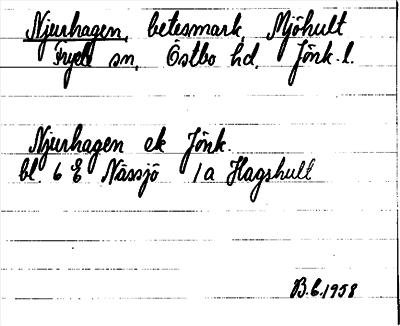 Njurhagen, betesmark, Mjöhult
Fryele sn, Östbo hd, Jönk. l.
Njurhagen ek Jönk.
bl. 6 E Nässjö 1a Hagshult
B.G. 1958